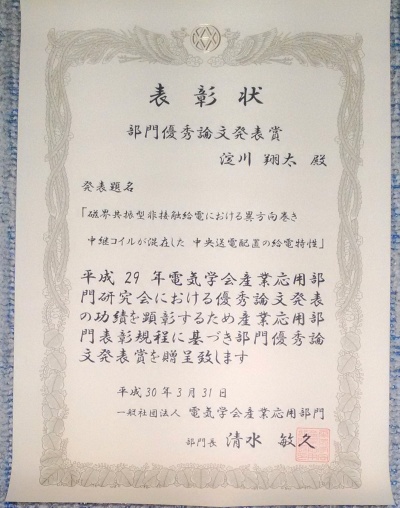 表彰状
部門優秀論文発表賞
淀川 翔太 殿
発表題名
「磁界共振型非接触給電における異方向巻き
中継コイルが混在した 中央送電配置の給電特性」
平成 29 年電気学会産業応用部
門研究会における優秀論文発表
の功績を顕彰するため産業応用部
門表彰規程に基づき部門優秀論
文発表賞を贈呈致します
平成 30 年 3 月 31 日
一般社団法人 電気学会産業応用部門
部門長 清水 敏久